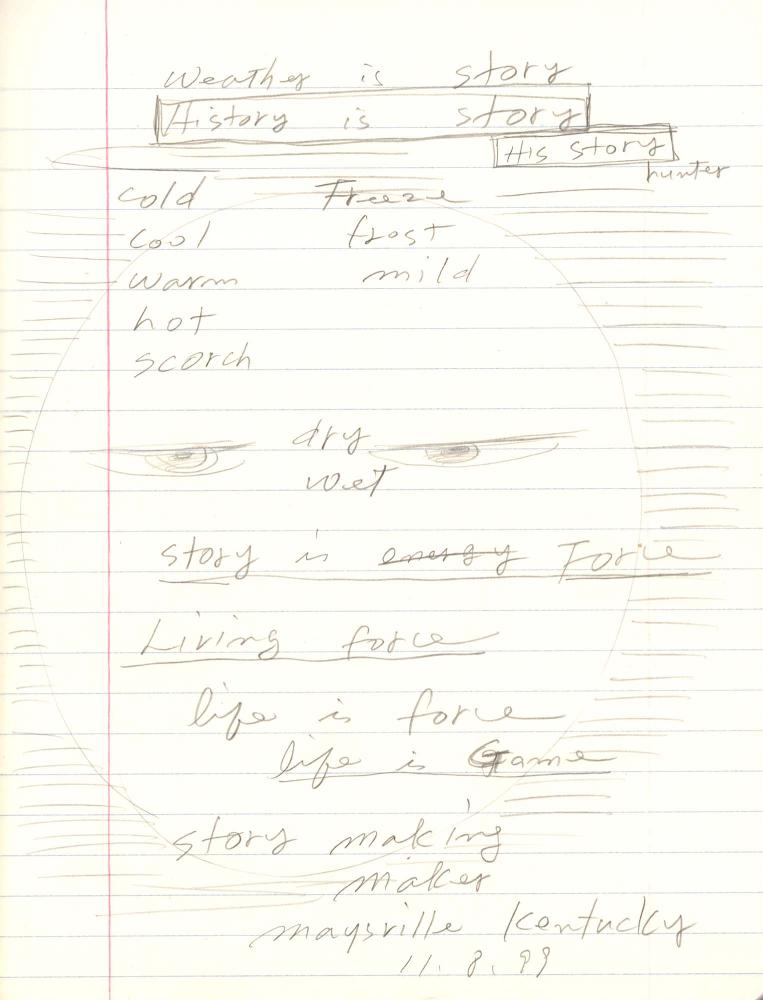 Weather is story
History is story
His story
hunter
cold Freeze
cool frost
warm mild
hot
scorch
dry
wet
story is energy Force
Living force
life is force
life is Game
story making
maker
maysville Kentucky
11.8.99